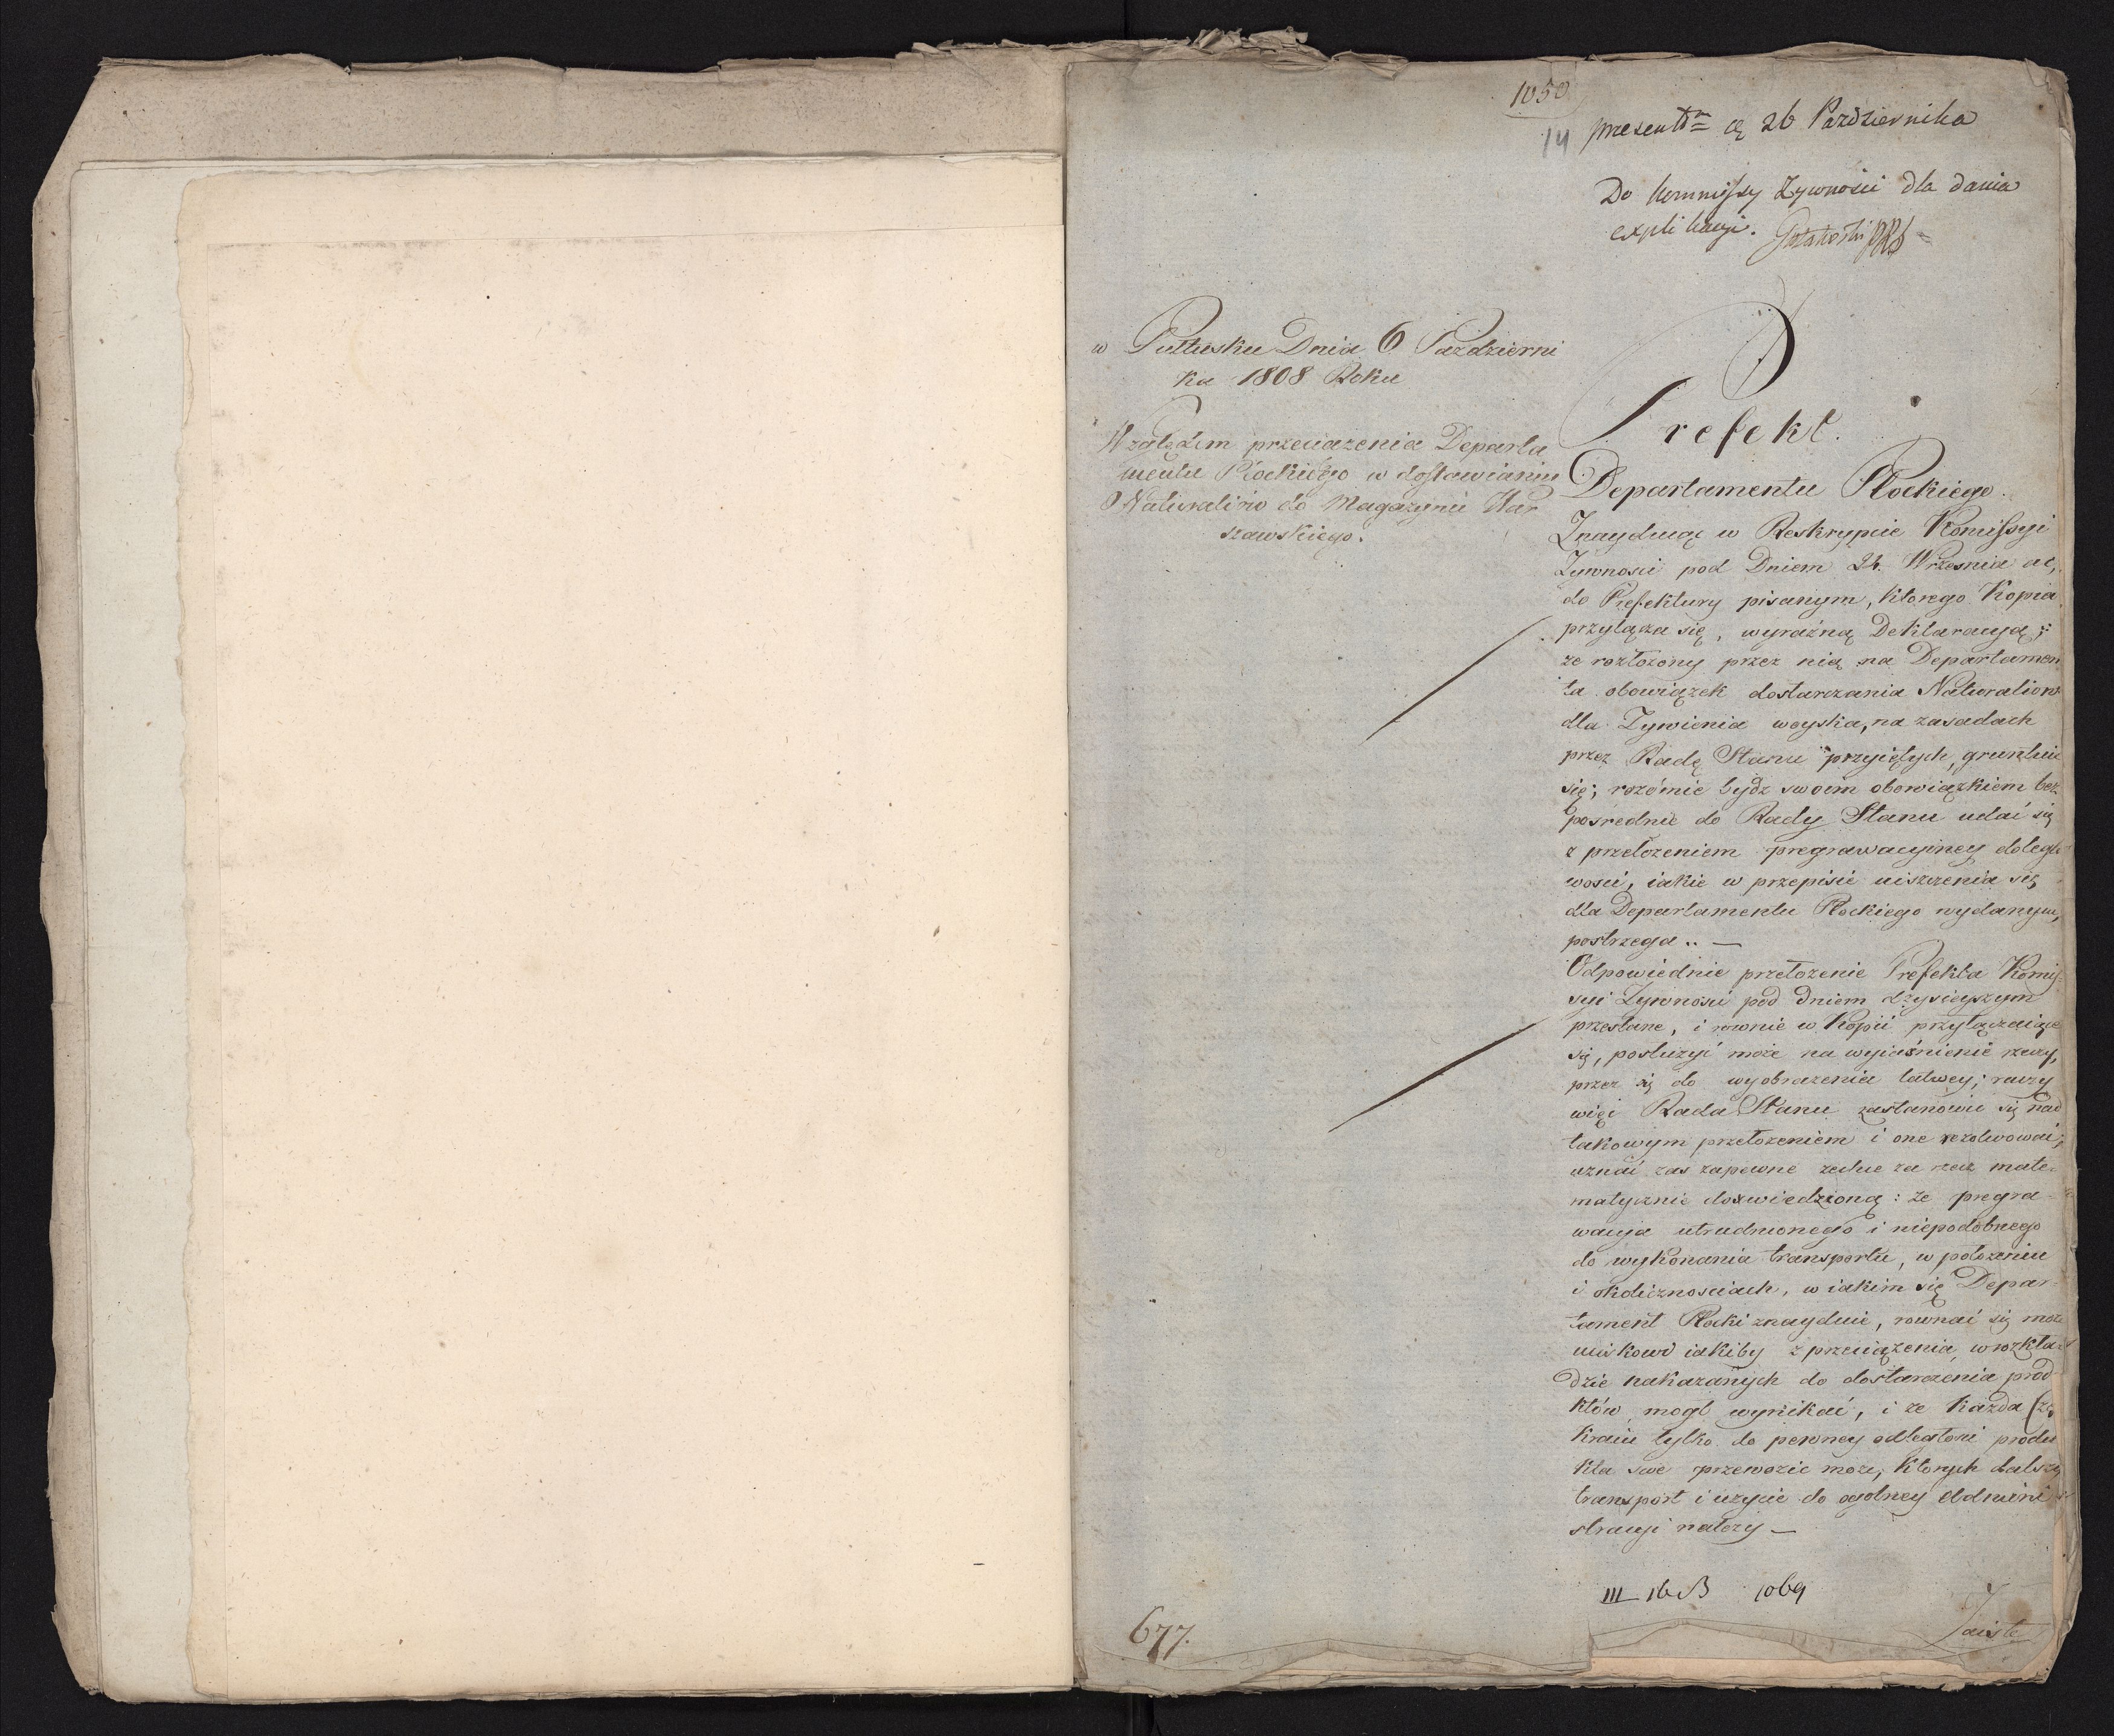 1050
14
presentm 26 Pazdziernika
Do Kommissy Zywnosci dla dania
explikacyi.
w Pułtusku Dnia 6 Pazdzierni
ka 1808 Roku
Względem przeciazenia Departa
mentu Płockiego w dostawianiu
Naturaliów do Magazynu War
szawskiego.
Prefekt.
Departamentu Płockiego.
Znayduiąc w Reskrypcie Komissyi
Zywnosci pod Dniem 24. Wrzesnia ac,
do Prefektury pisanym, ktorego Kopia
przyłącza się, wyraźną Deklaracyą;
ze rozłozony przez nią na Departamen
ta obowiązek dostarczania Naturaliow
dla Zywienia woyska, na zasadach
przez Radę Stanu przyiętych, gruntuie
się; rozómie bydz swoim obowiązkiem bez
posrednie do Rady Stanu udać się
z przełozeniem pregrawacyiney dolegli
wosci, iakie w przepisie uiszczenia się
dla Departamentu Płockiego wydanym,
postrzega .. —
Odpowiednie przełozenie Prefekta Komis
syi Zywnosci pod Dniem dzysieyszym
przesłane, i rownie w Kopii przyłączaiące
się, posłuzyć może na wyiaśnienie rzeczy,
przez się do wyobrazenia łatwey; raczy
więc Rada Stanu zastanowic się nad
takowym przełozeniem i one rezolwowai;
uznać zas zapewne zechce za rzecz mate-
matycznie doswiedzioną: ze pregra-
wacyia utrudnionego i niepodobnego
do wykonania transportu, w połozeniu
i okolicznosciach, w iakim się Depar-
tament Płocki znayduie, rownać się moze
uciskowi iakiby z przeciązenia w rozkła-
dzie nakazanych do dostarczenia prod
któw mogł wynikać, i ze każda
kraiu tylko do pewney odległosci produ
kta swe przewozic moze, ktorych dalszy
transport i uzycie do ogolney Admini
stracyi nalezy —
III 16 B 1069
677.
Zaiste